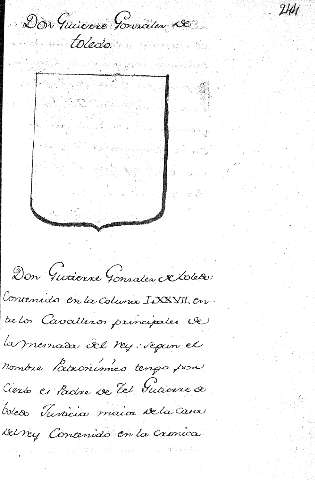 244
Don Gutierre Gonzalez de
toledo
Don Gutierre Gonzalez de toledo
Contenido en la Coluna LXXVII. en
tre los Cavalleros principales de
la mesnada del Rey: segun el
nombre Patronimico tengo por
Cierto es Padre de Tel Gutierre de
toledo Justicia maior de la Casa
del Rey Contenido en la cronica